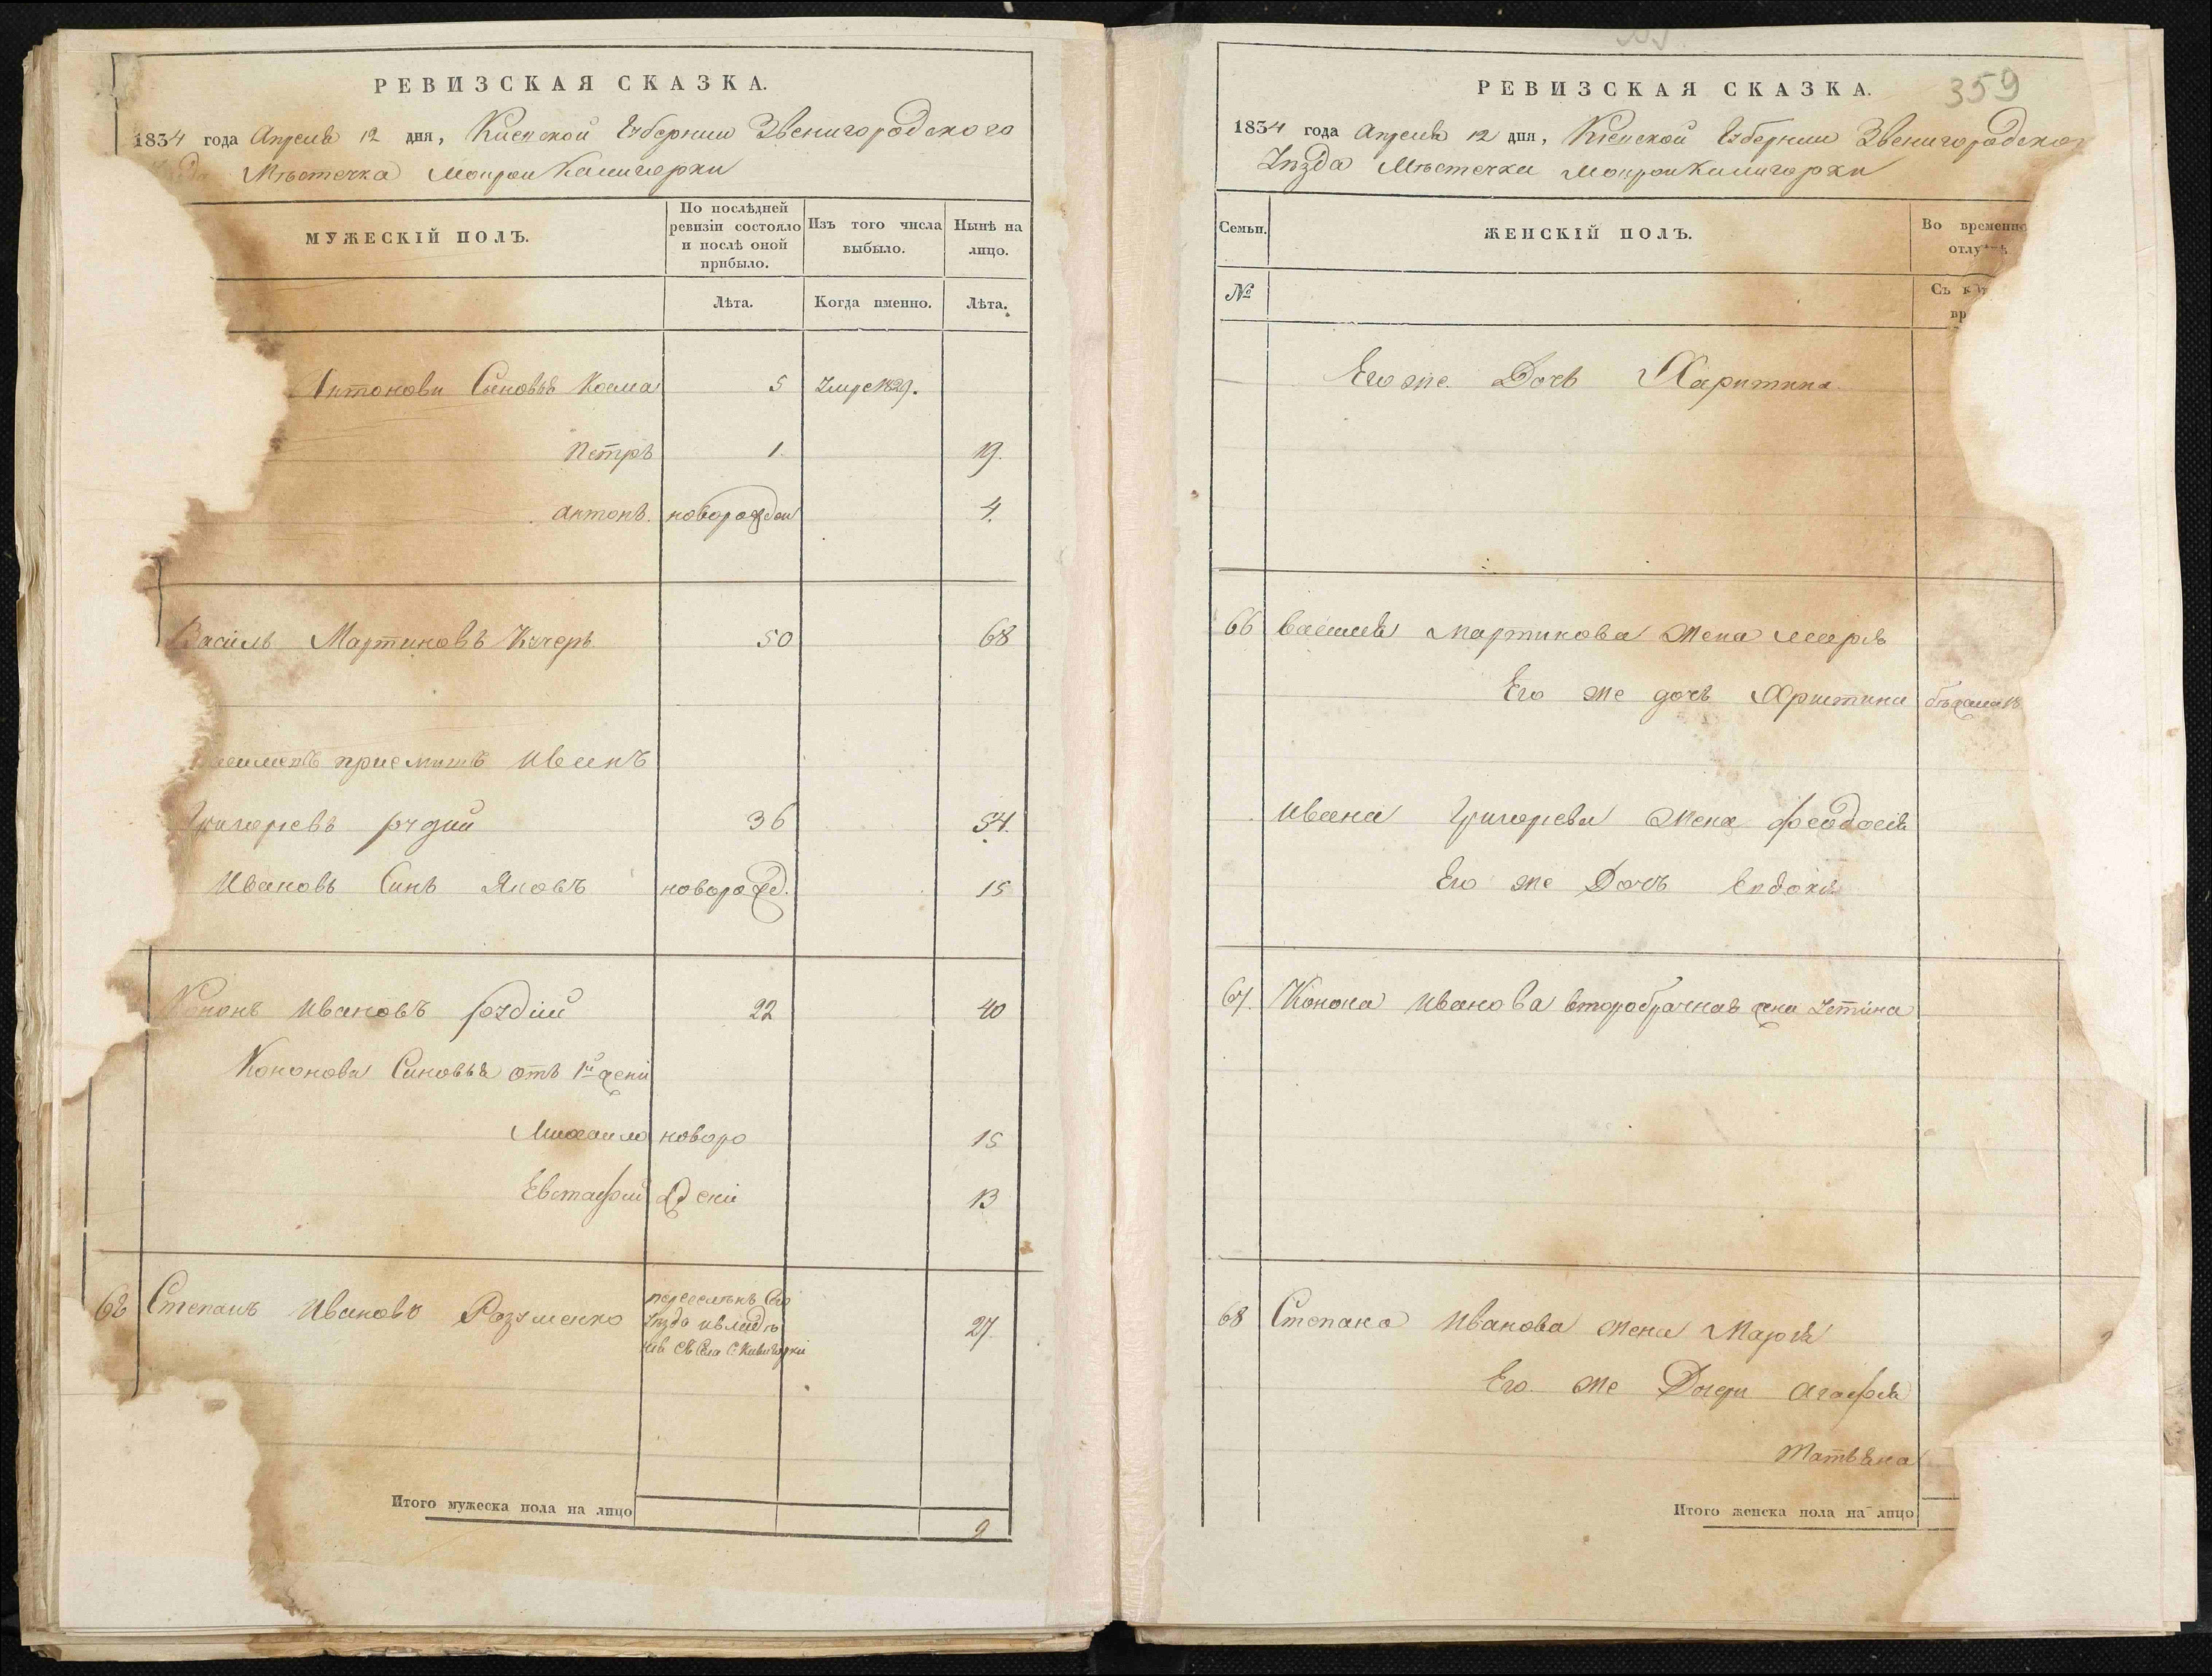 РЕВИЗСКАЯ СКАЗКА.
1834 года Апреля 12 дня, Киевской Губернии Звенигородского
Местечка Мокрои Калигорки
МУЖЕСКІЙ ПОЛЪ.
По послѣдней ревизіи состояло и послѣ оной прибыло.
Изъ того числа выбыло.
Нынѣ на лицо.
Лѣта.
Когда именно.
Лѣта.
Антонови Сыновья Козма 5 Умре 1829.
Петръ 1 19.
Антонъ. новорожден 4.
Василь Мартиновъ Кучеръ 50 68
приемишъ Иванъ
Григорьевъ рудий 36 54.
Ивановъ Синъ Яковъ новорожд. 15
Кононъ Ивановъ рудій 22 40
Кононова Синовья отъ 1й жени
Михаило новоро 15
Евстафий ждени 13
68 Степанъ Ивановъ Разуменко 27
Итого мужеска пола на лицо
9
РЕВИЗСКАЯ СКАЗКА.
359
1834 года Апреля 12 дня, Кіевской Губернии Звенигородско
Уезда Местечка Мокрои Калигорки
Семьи.
ЖЕНСКІЙ ПОЛЪ.
Во временно
отлу
№
Съ к
вр
Его же Дочь Харитина.
66 Василия Мартинова жена Марья
Его же дочь Христина
Ивана Григорьева жена феодосия
Его же Дочь Евдокия
67. Конона Иванова второбрачная жена Устина
68 Степана Иванова жена Мария
Его же Дочери Агафия
Татьяна
Итого женска пола на лицо